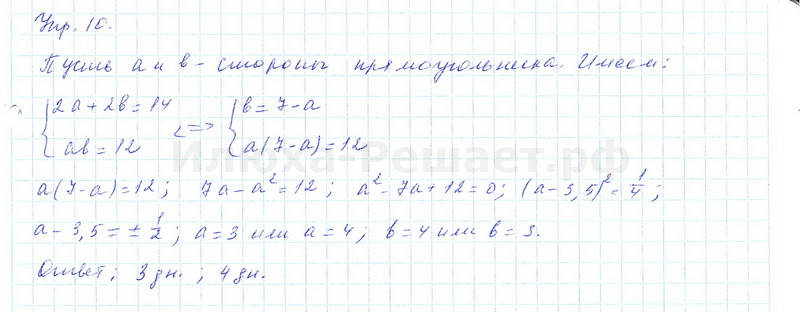 Упр. 10.
Пусть a и b - стороны прямоугольника. Имеем:
{2a+2b=14 <=> {b=7-a
ab=12 a(7-a)=12
Илюха-Решает.рф
a(7-a)=12; 7a-a²=12; a²-7a+12=0; (a-3,5)²=1/4;
a-3,5=±1/2; a=3 или a=4; b=4 или b=3.
Ответ: 3 дм. ; 4 дм.